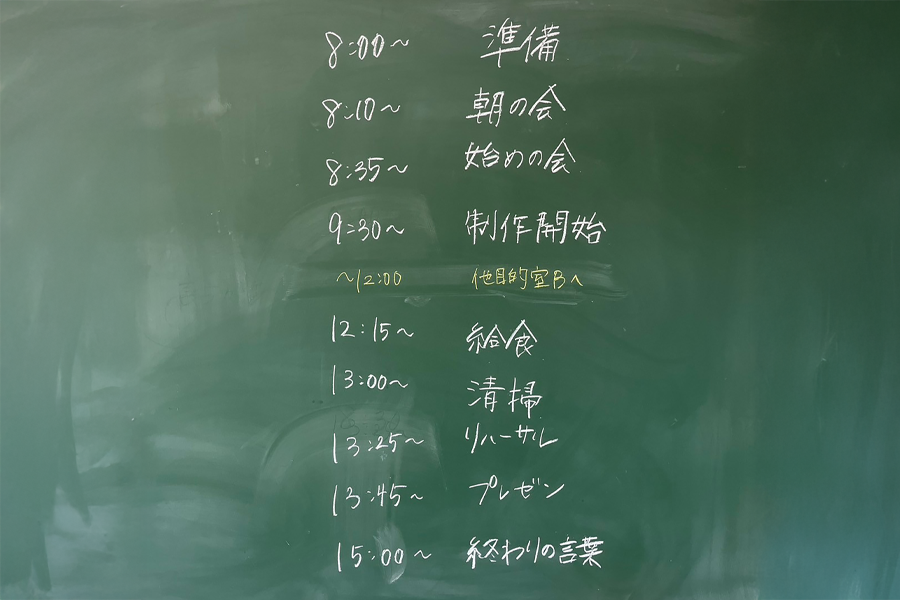 8:00～ 準備
8:10～ 朝の会
8:35～ 始めの会
9:30～ 制作開始
～12:00 他目的室Bへ
12:15～ 給食
13:00～ 清掃
13:25～ リハーサル
13:45～ プレゼン
15:00～ 終わりの言葉